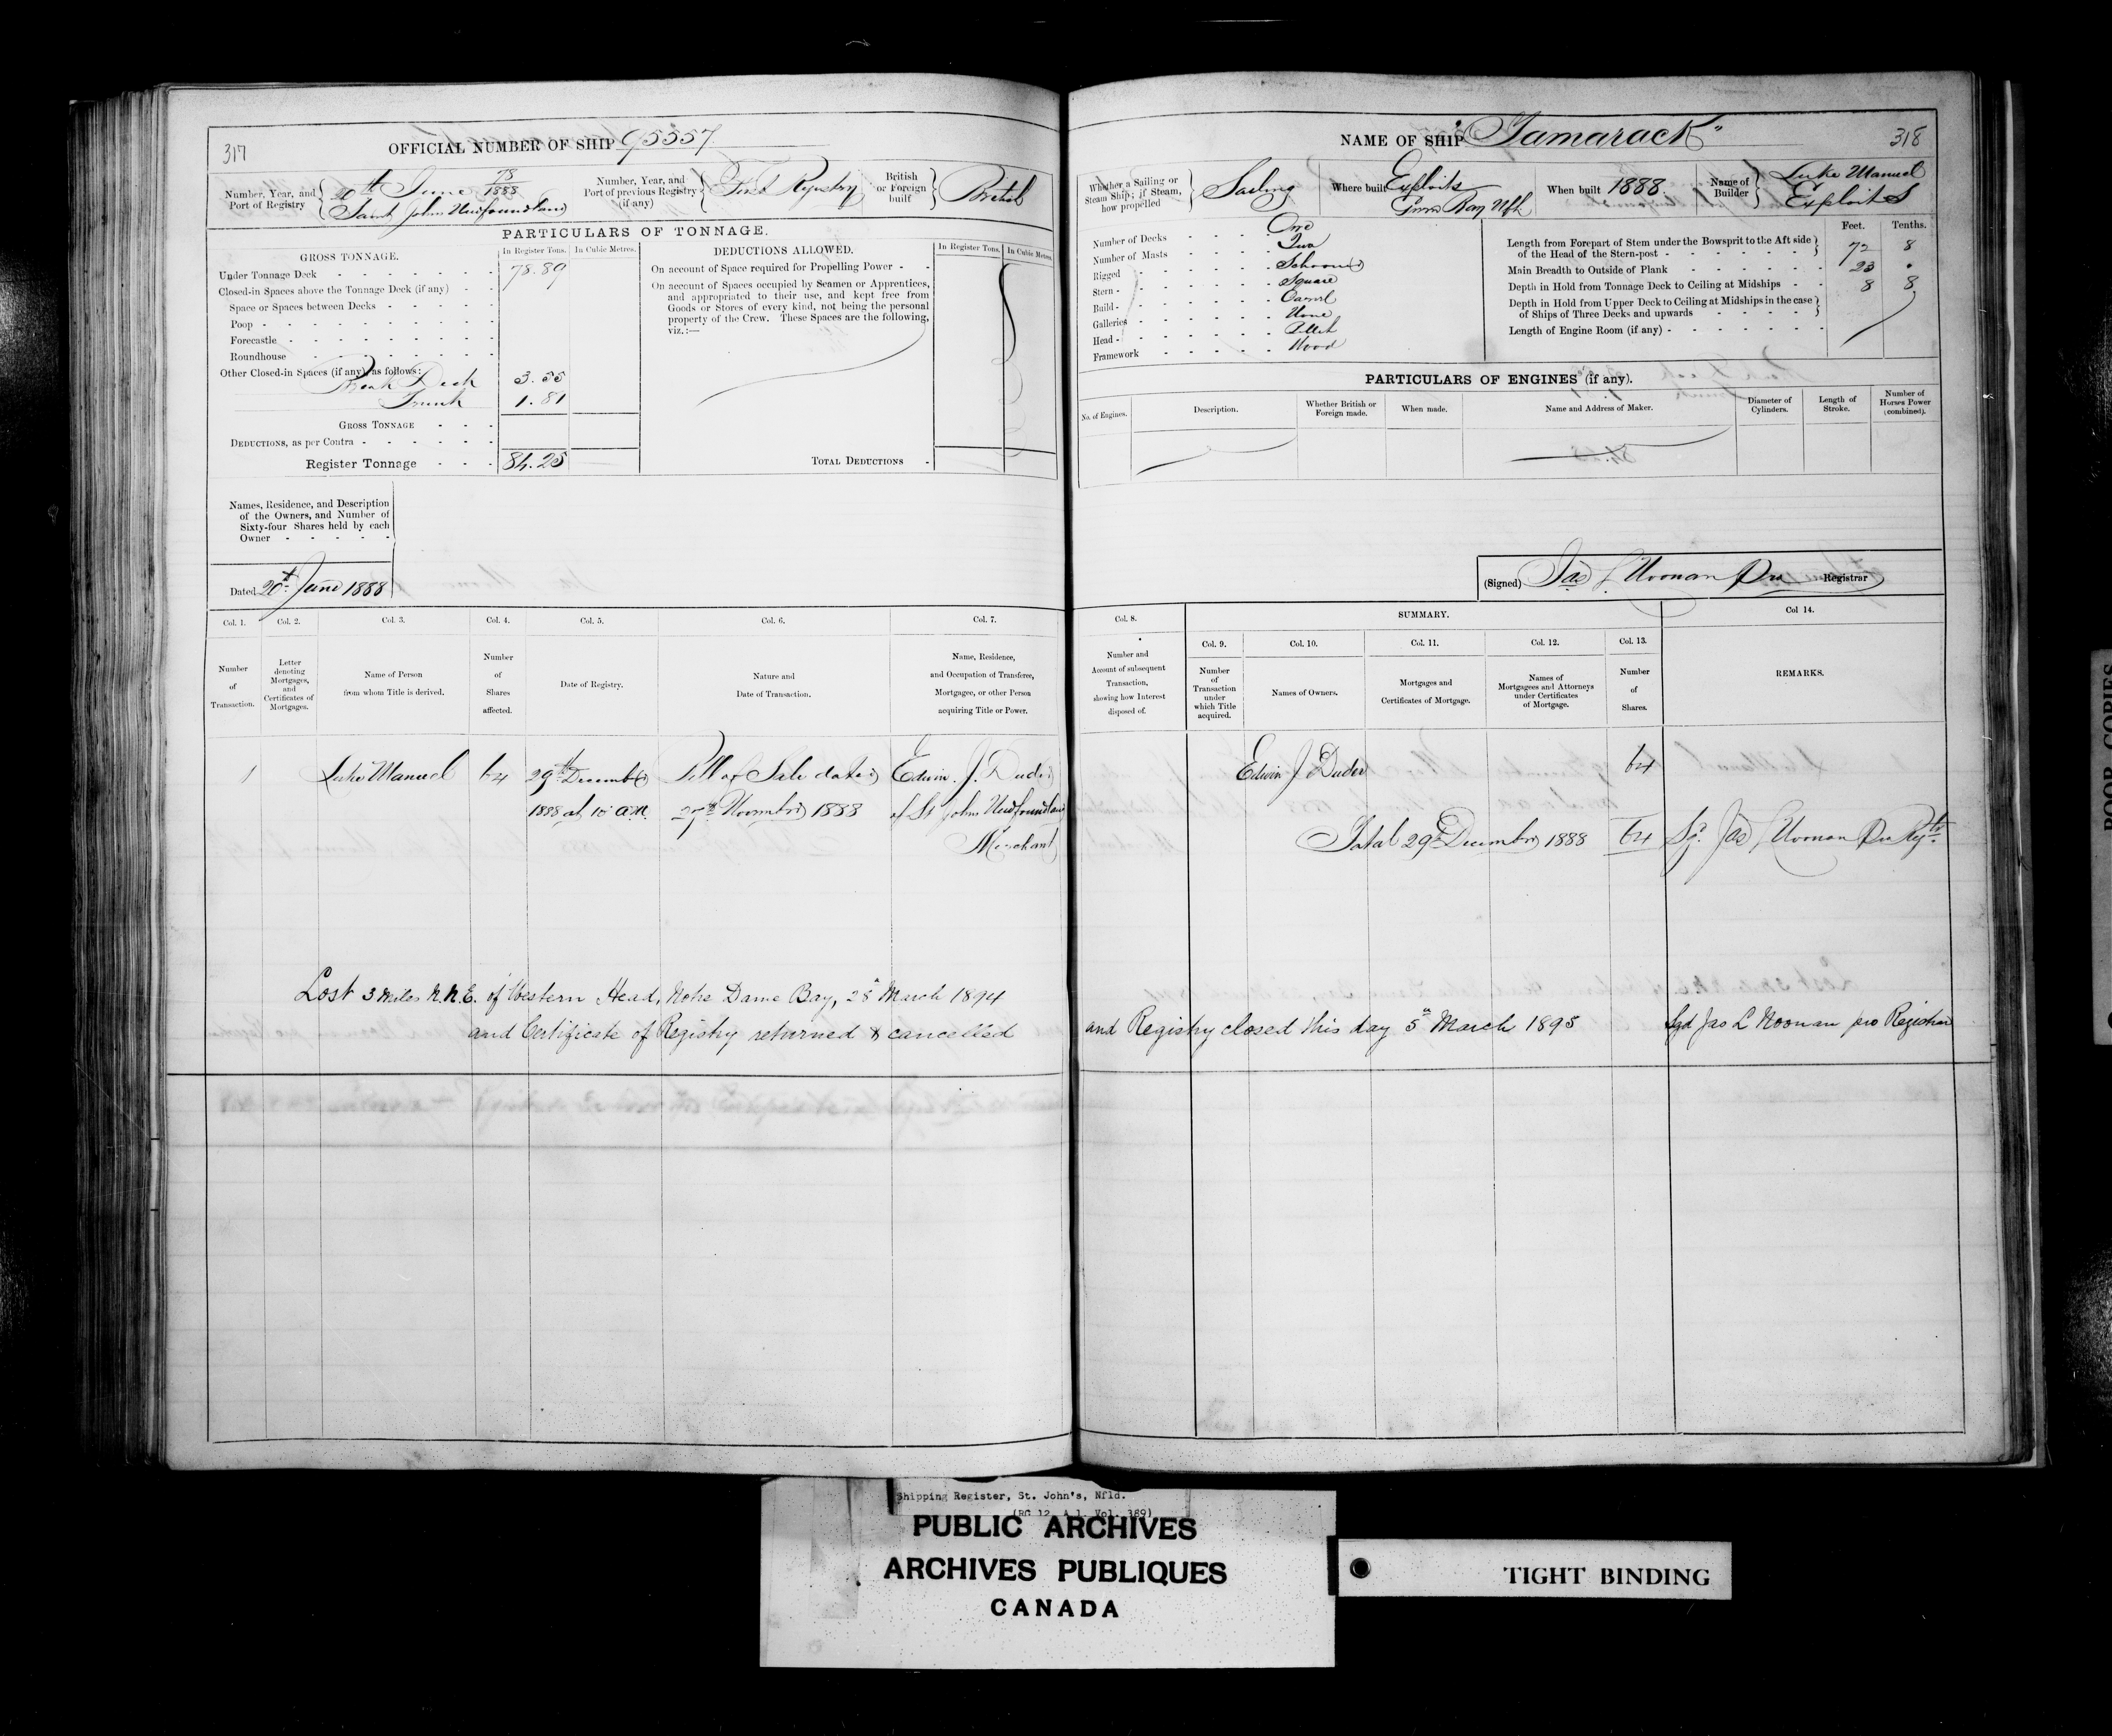 317
OFFICIAL NUMBER OF SHIP 95557
Number, Year, and Port of Registry
20th June 78/1888
Saint Johns Newfoundland
Number, Year, and Port of previous Registry (if any)
First Registry
British or Foreign built
British
PARTICULARS OF TONNAGE.
GROSS TONNAGE.
In Register Tons.
In Cubic Metres.
Under Tonnage Deck 78.89
Closed-in Spaces above the Tonnage Deck (if any)
Space or Spaces between Decks
Poop
Forecastle
Roundhouse
Other Closed-in Spaces (if any), as follows:
Break Deck 3.55
Trunk 1.81
GROSS TONNAGE
DEDUCTIONS, as per Contra
Register Tonnage 84.25
DEDUCTIONS ALLOWED.
In Register Tons.
In Cubic Metres.
On account of Space required for Propelling Power
On account of Spaces occupied by Seamen or Apprentices,
and appropriated to their use, and kept free from
Goods or Stores of every kind, not being the personal
property of the Crew. These Spaces are the following,
viz.:—
TOTAL DEDUCTIONS
Names, Residence, and Description
of the Owners, and Number of
Sixty-four Shares held by each
Owner
Dated 20th June 1888
Col. 1.
Number
of
Transaction.
Col. 2.
Letter
denoting
Mortgages,
and
Certificates of
Mortgages.
Col. 3.
Name of Person
from whom Title is derived.
Col. 4.
Number
of
Shares
affected.
Col. 5.
Date of Registry.
Col. 6.
Nature and
Date of Transaction.
Col. 7.
Name, Residence,
and Occupation of Transferee,
Mortgagee, or other Person
acquiring Title or Power.
1 Luke Manuel 64 29th December Bill of Sale dated Edwin J. Duder
1888 at 10 a.m. 27th November 1888 of St Johns Newfoundland
Merchant
Lost 3 miles N.N.E. of Western Head, Notre Dame Bay, 28th March 1894
and Certificate of Registry returned & cancelled
NAME OF SHIP "Tamarack"
318
Whether a Sailing or Steam Ship; if Steam, how propelled
Sailing
Where built Exploits
Bay Nfld
When built 1888
Name of Builder
Luke Manuel
Exploits
Number of Decks One
Number of Masts Two
Rigged Schooner
Stern Square
Build Carvel
Galleries None
Head Billet
Framework Wood
Feet. Tenths.
Length from Forepart of Stem under the Bowsprit to the Aft side
of the Head of the Stern-post 72 8
Main Breadth to Outside of Plank 23 .
Depth in Hold from Tonnage Deck to Ceiling at Midships 8 8
Depth in Hold from Upper Deck to Ceiling at Midships in the case
of Ships of Three Decks and upwards
Length of Engine Room (if any)
PARTICULARS OF ENGINES (if any).
No. of Engines.
Description.
Whether British or
Foreign made.
When made.
Name and Address of Maker.
Diameter of
Cylinders.
Length of
Stroke.
Number of
Horses Power
(combined).
(Signed) Jas L Noonan Pro Registrar
Col. 8.
Number and
Account of subsequent
Transaction,
showing how Interest
disposed of.
SUMMARY.
Col. 9.
Number
of
Transaction
under
which Title
acquired.
Col. 10.
Names of Owners.
Col. 11.
Mortgages and
Certificates of Mortgage.
Col. 12.
Names of
Mortgagees and Attorneys
under Certificates
of Mortgage.
Col. 13.
Number
of
Shares.
Col 14.
REMARKS.
Edwin J Duder 64
Total 29th December 1888 64 Sgd Jas L Noonan Pro Regtr
and Registry closed this day 5th March 1895 Sgd Jas L Noonan pro Registrar
Shipping Register, St. John's, Nfld.
(RG 12, A 1, Vol. 389)
PUBLIC ARCHIVES
ARCHIVES PUBLIQUES
CANADA
TIGHT BINDING
POOR COPIES